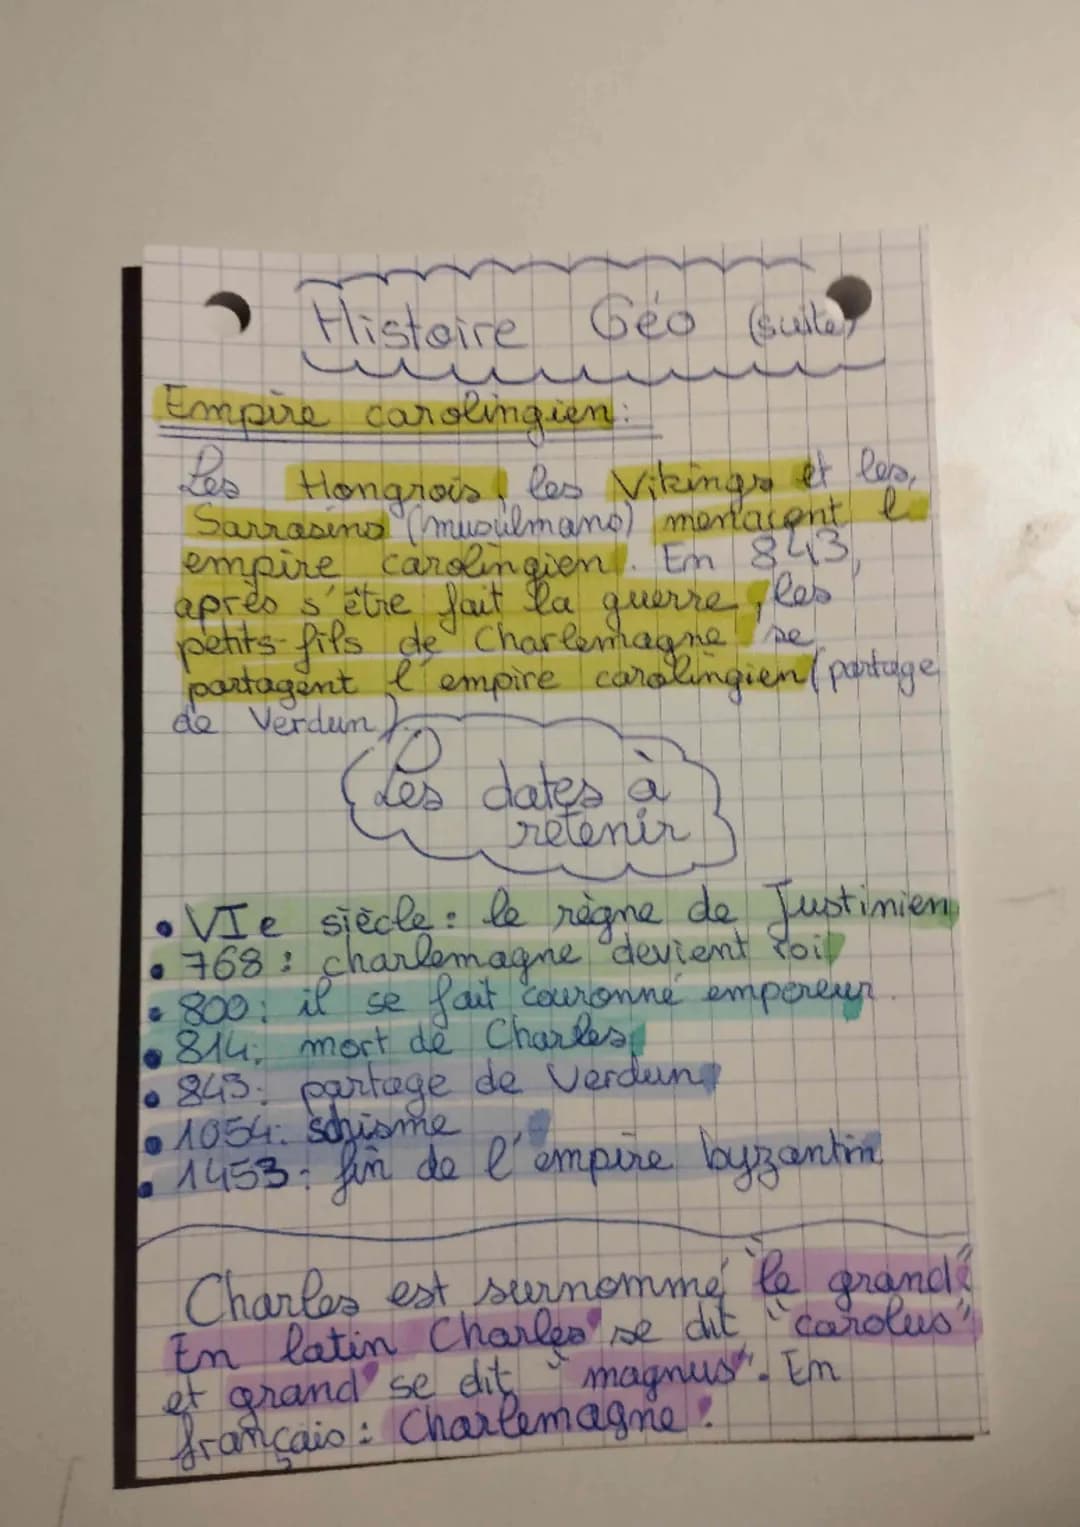 Histoire Géo (suite)
Empire carolingien:
Les Hongrois, les Vikings et les
Sarrasins (musulmans) menacent l'
empire carolingien. En 843,
après s'être fait la guerre, les
petits-fils de Charlemagne se
partagent l'empire carolingien (partage
de Verdun).
Les dates à
retenir
• VIe siècle: le règne de Justinien
• 768: charlemagne devient roi
• 800: il se fait couronné empereur.
• 814: mort de Charles
• 843: partage de Verdun
• 1054: schisme
• 1453: fin de l'empire byzantin
Charles est surnommé "le grand".
En latin Charles se dit "carolus"
et grand se dit "magnus". En
français: Charlemagne.